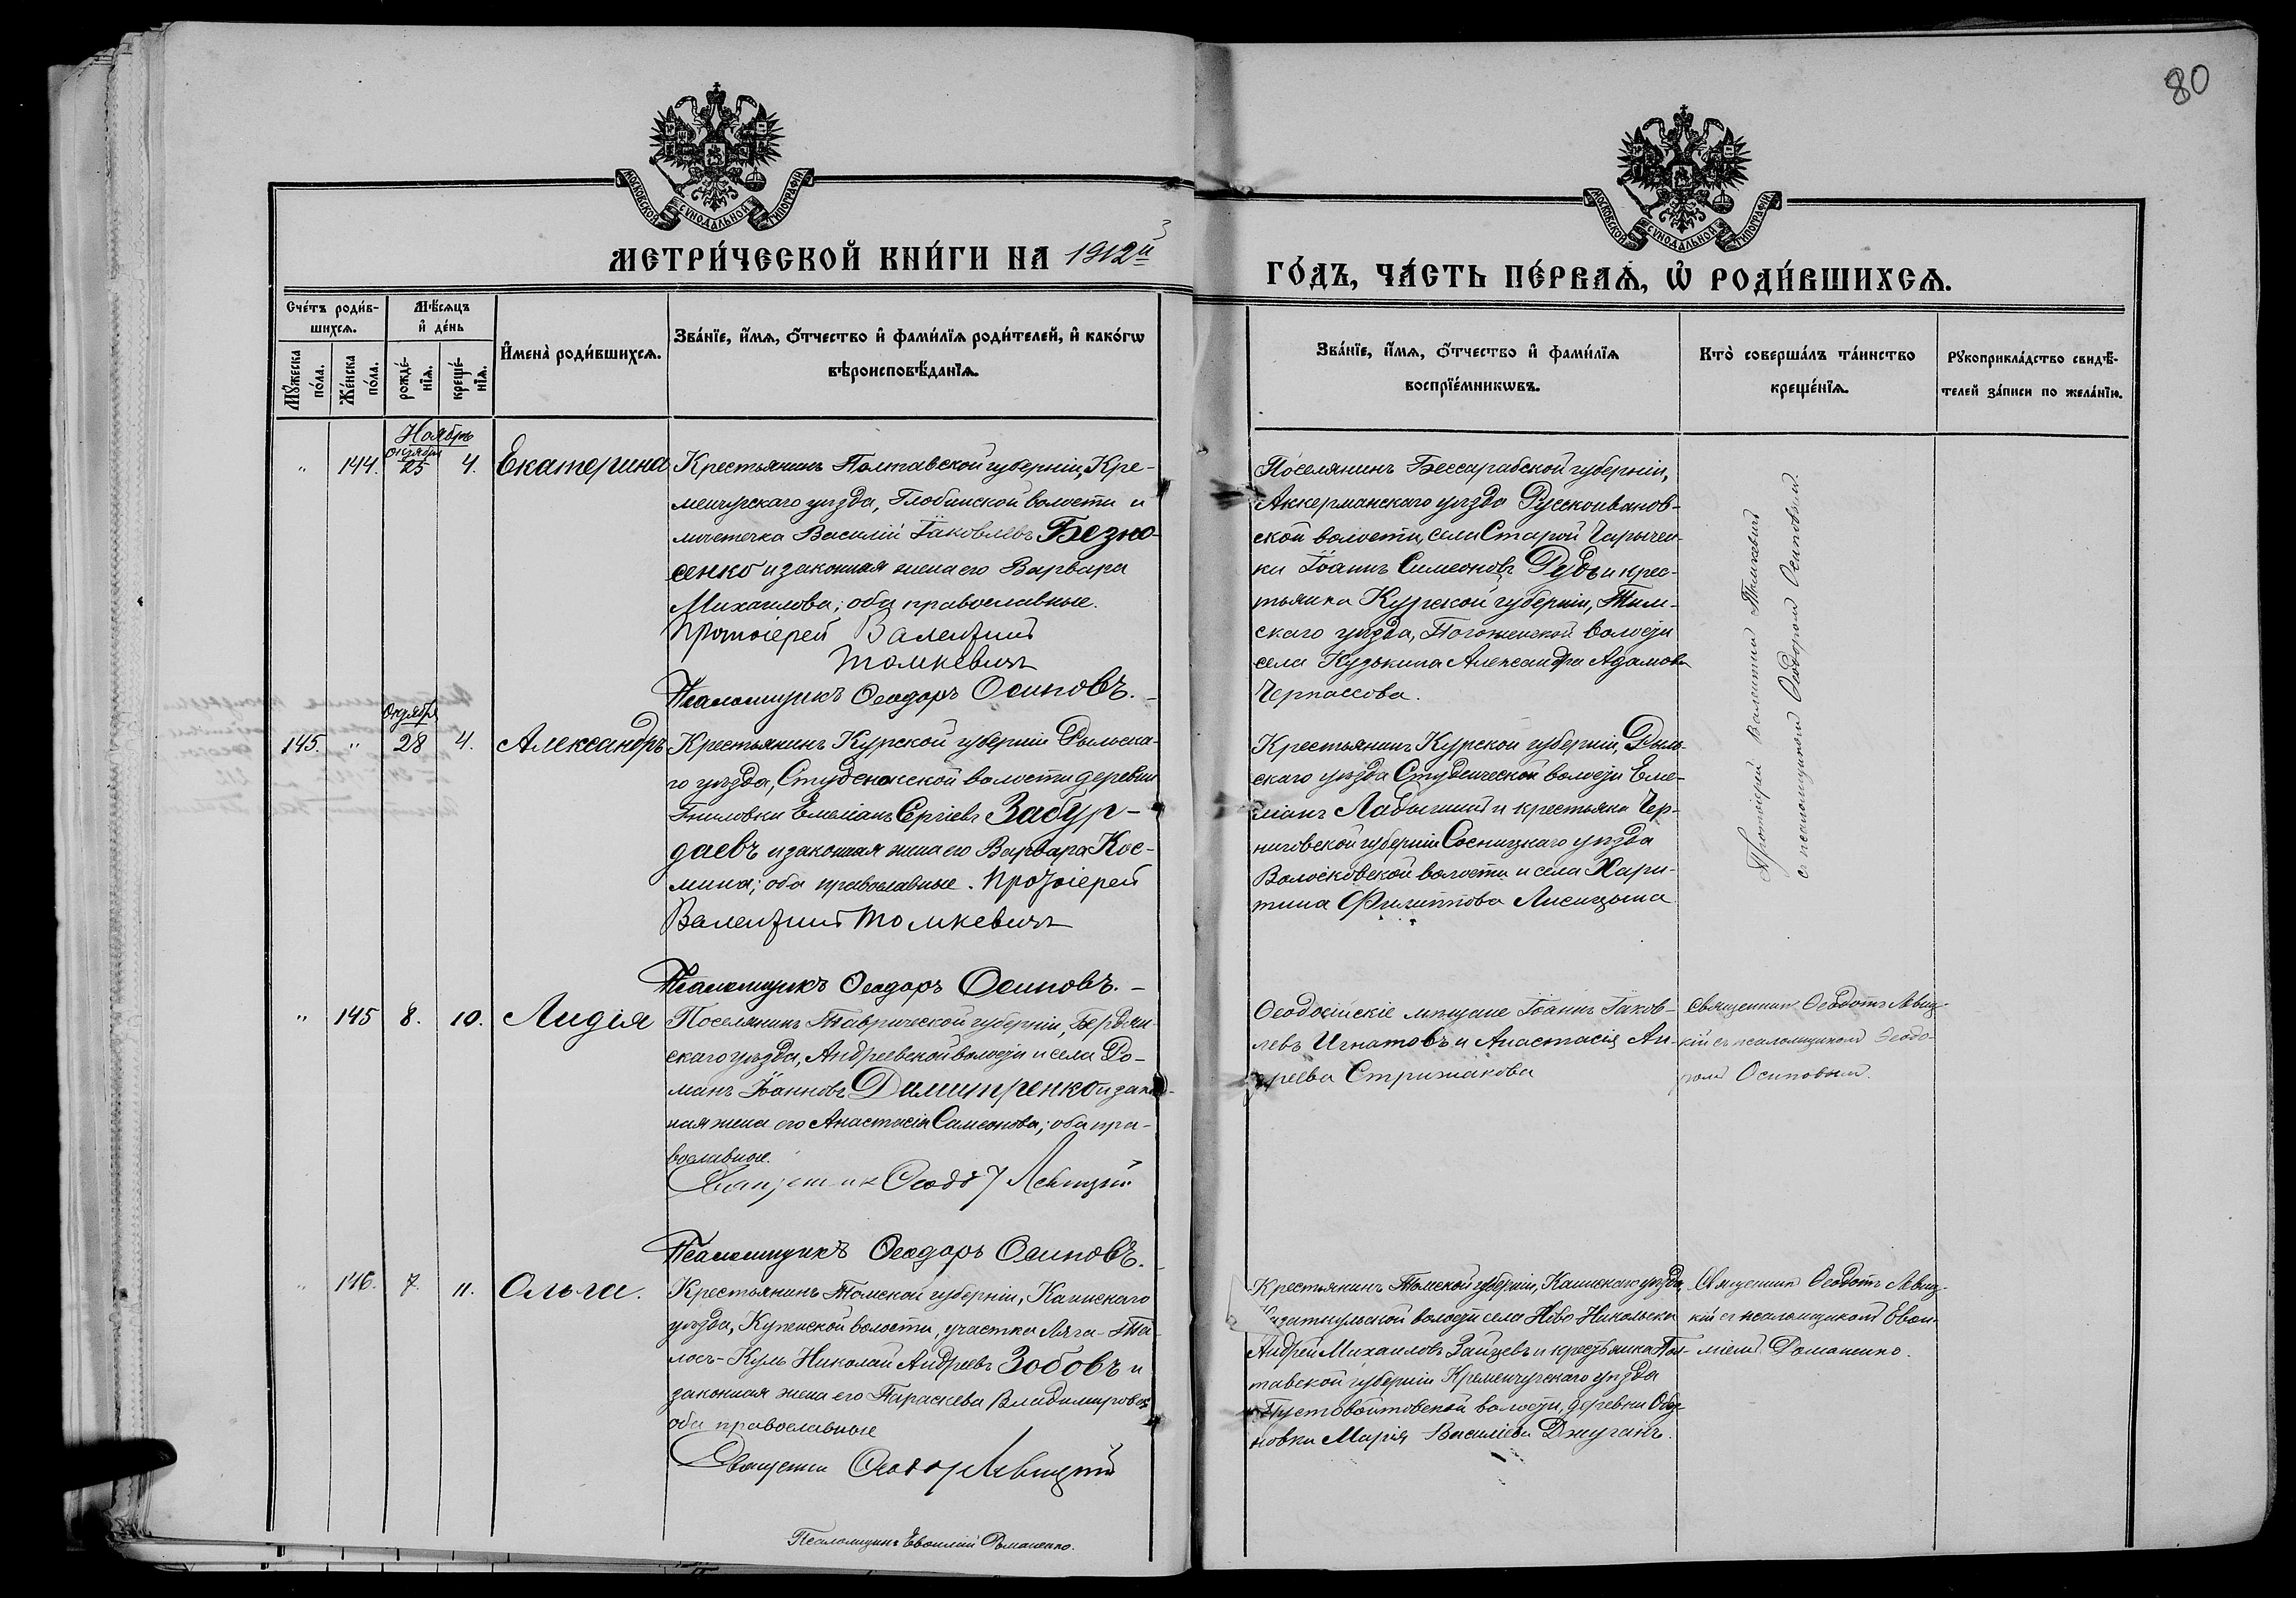 80
МОСКОВСКОЙ СѴНОДАЛЬНОЙ ТИПОГРАФІИ
МОСКОВСКОЙ СѴНОДАЛЬНОЙ ТИПОГРАФІИ
МЕТРИ́ЧЕСКОЙ КНИ́ГИ НА 1912й
ГО́ДЪ, ЧА́СТЬ ПЕ́РВАѦ, Ѡ҆ РОДИ́ВШИХСѦ.
Сче́тъ роди́в-
шихсѧ.
Мꙋ́жеска
по́ла.
Же́нска
по́ла.
Мѣ́сѧцъ
и҆ де́нь
рожде́-
нїѧ.
креще́-
нїѧ.
И҆мена̀ роди́вшихсѧ.
Зва́нїе, и҆́мѧ, ѻ҆́тчество и҆ фами́лїѧ роди́телей, и҆ како́гѡ
вѣроисповѣ́данїѧ.
Зва́нїе, и҆́мѧ, ѻ҆́тчество и҆ фами́лїѧ
воспрїе́мникѡвъ.
Кто̀ соверша́лъ та́инство
креще́нїѧ.
Рꙋкоприкла́дство свидѣ́-
телей за́писи по жела́нїю.
Ноябрь
Октября
" 144. 25 4. Екатерина
Крестьянинъ Полтавской губерніи, Кре-
менчугскаго уѣзда, Глобинской волости и
мѣстечка Василій Іаковлевъ Безно-
сенко и законная жена его Варвара
Михаилова; оба православные.
Протоіерей Валентинъ
Томкевичъ
Псаломщикъ Ѳеодоръ Осиповъ.
Поселянинъ Бессарабской губерніи,
Аккерманскаго уѣзда Русскоиванов-
ской волости, села Старой Царичен-
ки Іоаннъ Симеоновъ Рудь и крес-
тьянка Курской губерніи, Тим-
скаго уѣзда, Погоженской волости
села Кузькина Александра Адамова
Черпассова.
Протоіерей Валентинъ Томкевичъ
съ псаломщикомъ Ѳеодоромъ Осиповымъ.
Октября
145. " 28 4. Александръ
Крестьянинъ Курской губерніи Рыльска-
го уѣзда, Студенокской волости деревни
Гниловки Емеліанъ Сергіевъ Забур-
даевъ и законная жена его Варвара Кос-
мина; оба православные. Протоіерей
Валентинъ Томкевичъ
Псаломщикъ Ѳеодоръ Осиповъ.
Крестьянинъ Курской губерніи, Рыль-
скаго уѣзда Студенческой волости Еме-
ліанъ и крестьянка Чер-
ниговской губерніи Сосницкаго уѣзда
Волосковской волости и села Хари-
тина Филиппова Лисицына
" 145 8. 10. Лидія
Поселянинъ Таврической губерніи, Бердян-
скаго уѣзда, Андреевской волости и села Ро-
манъ Іоанновъ Димитренко и закон-
ная жена его Анастасія Симеонова; оба пра-
вославные.
Священникъ Ѳеодотъ Левицкій
Псаломщикъ Ѳеодоръ Осиповъ.
Ѳеодосійскіе мѣщане Іоаннъ Іаков-
левъ Игнатовъ и Анастасія Ан-
дреева Стрижакова
Священникъ Ѳеодотъ Левиц-
кій съ псаломщикомъ Ѳеодо-
ромъ Осиповымъ.
" 146. 7. 11. Ольга.
Крестьянинъ Томской губерніи, Каинскаго
уѣзда, Купинской волости, участка Ляга-Та-
лось-Куль Николай Андреевъ Зобовъ и
законная жена его Параскева Владимирова
оба православные
Священникъ Ѳеодотъ Левицкій
Псаломщикъ Евѳимій Романенко.
Крестьянинъ Томской губерніи, Каинскаго уѣзда,
волости села Ново-Никольска
Андрей Михаиловъ Зайцевъ и крестьянка Пол-
тавской губерніи Кременчугскаго уѣзда
Пустовойтовской волости, деревни
новки Марія Василіева Джуганъ.
Священникъ Ѳеодотъ Левиц-
кій съ псаломщикомъ Евѳи-
міемъ Романенко.